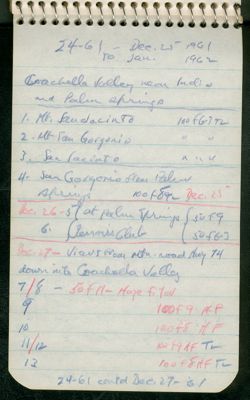 24-61 - Dec. 25 1961
to Jan. 1962
Coachella Valley near Indio
and Palm Springs
1. Mt. San Jacinto 100 f 6.3 TL
2. Mt San Gorgonio " "
3. San Jacinto " " "
4. San Gorgonio near Palm
Springs 100 f 8 Dec. 25
Dec. 26 - 5 at Palm Springs 50 f 9
6. Tennis Club 50 f 6.3
Dec. 27 - Views from mtn. road Hwy 74
down into Coachella Valley
7/8 - 50 f 11 -
9 100 f 9 AF
10 100 f 8 AF
11/12 100 f 9 AF TL
13 100 f 8 AF TL
24-61 contd Dec. 27 - 61